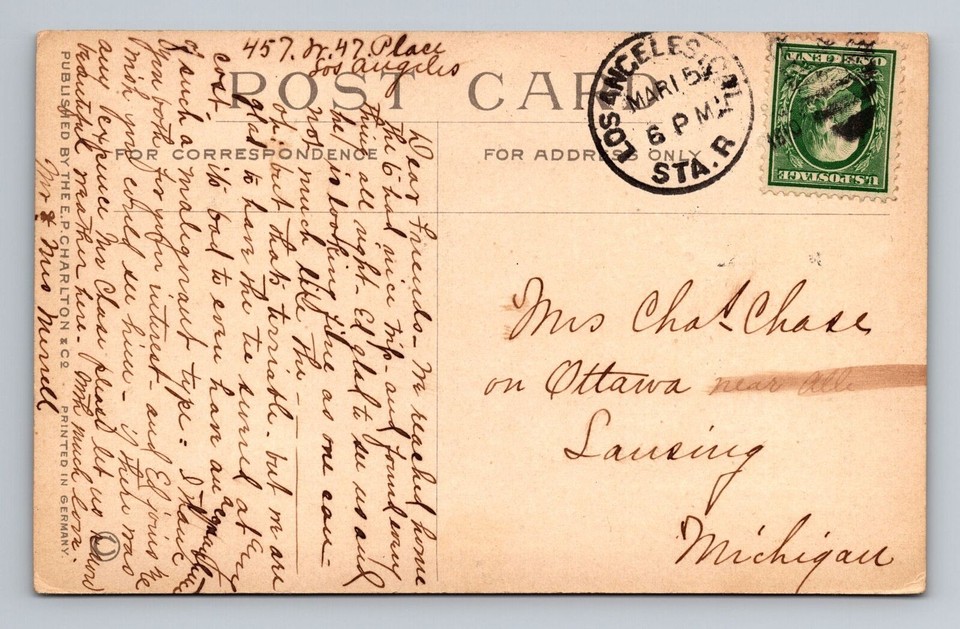 457. W. 47. Place
Los Angeles
POST CARD
FOR CORRESPONDENCE
FOR ADDRESS ONLY
LOS ANGELES, CAL.
MAR 15
6 PM
STA. R
U.S. POSTAGE
ONE CENT
Dear Friends - We reached home
the 6th had nice trip - and found every
thing all right - Ed glad to see us and
he is looking fine as one can -
not much like the
op. but that's terriable - but we are
glad to have the tie sured at any
cost - it's bad to even have an
of such a malignant type: I thank
you both for yr interest - and Ed joins
wish you could see him - if there was
any experience Mr Chase please let us know
beautiful weather here - With much love.
Mr & Mrs Murrell
Mrs Chas. Chase
on Ottawa near
Lansing
Michigan
PUBLISHED BY THE E.P. CHARLTON & CO.
PRINTED IN GERMANY.